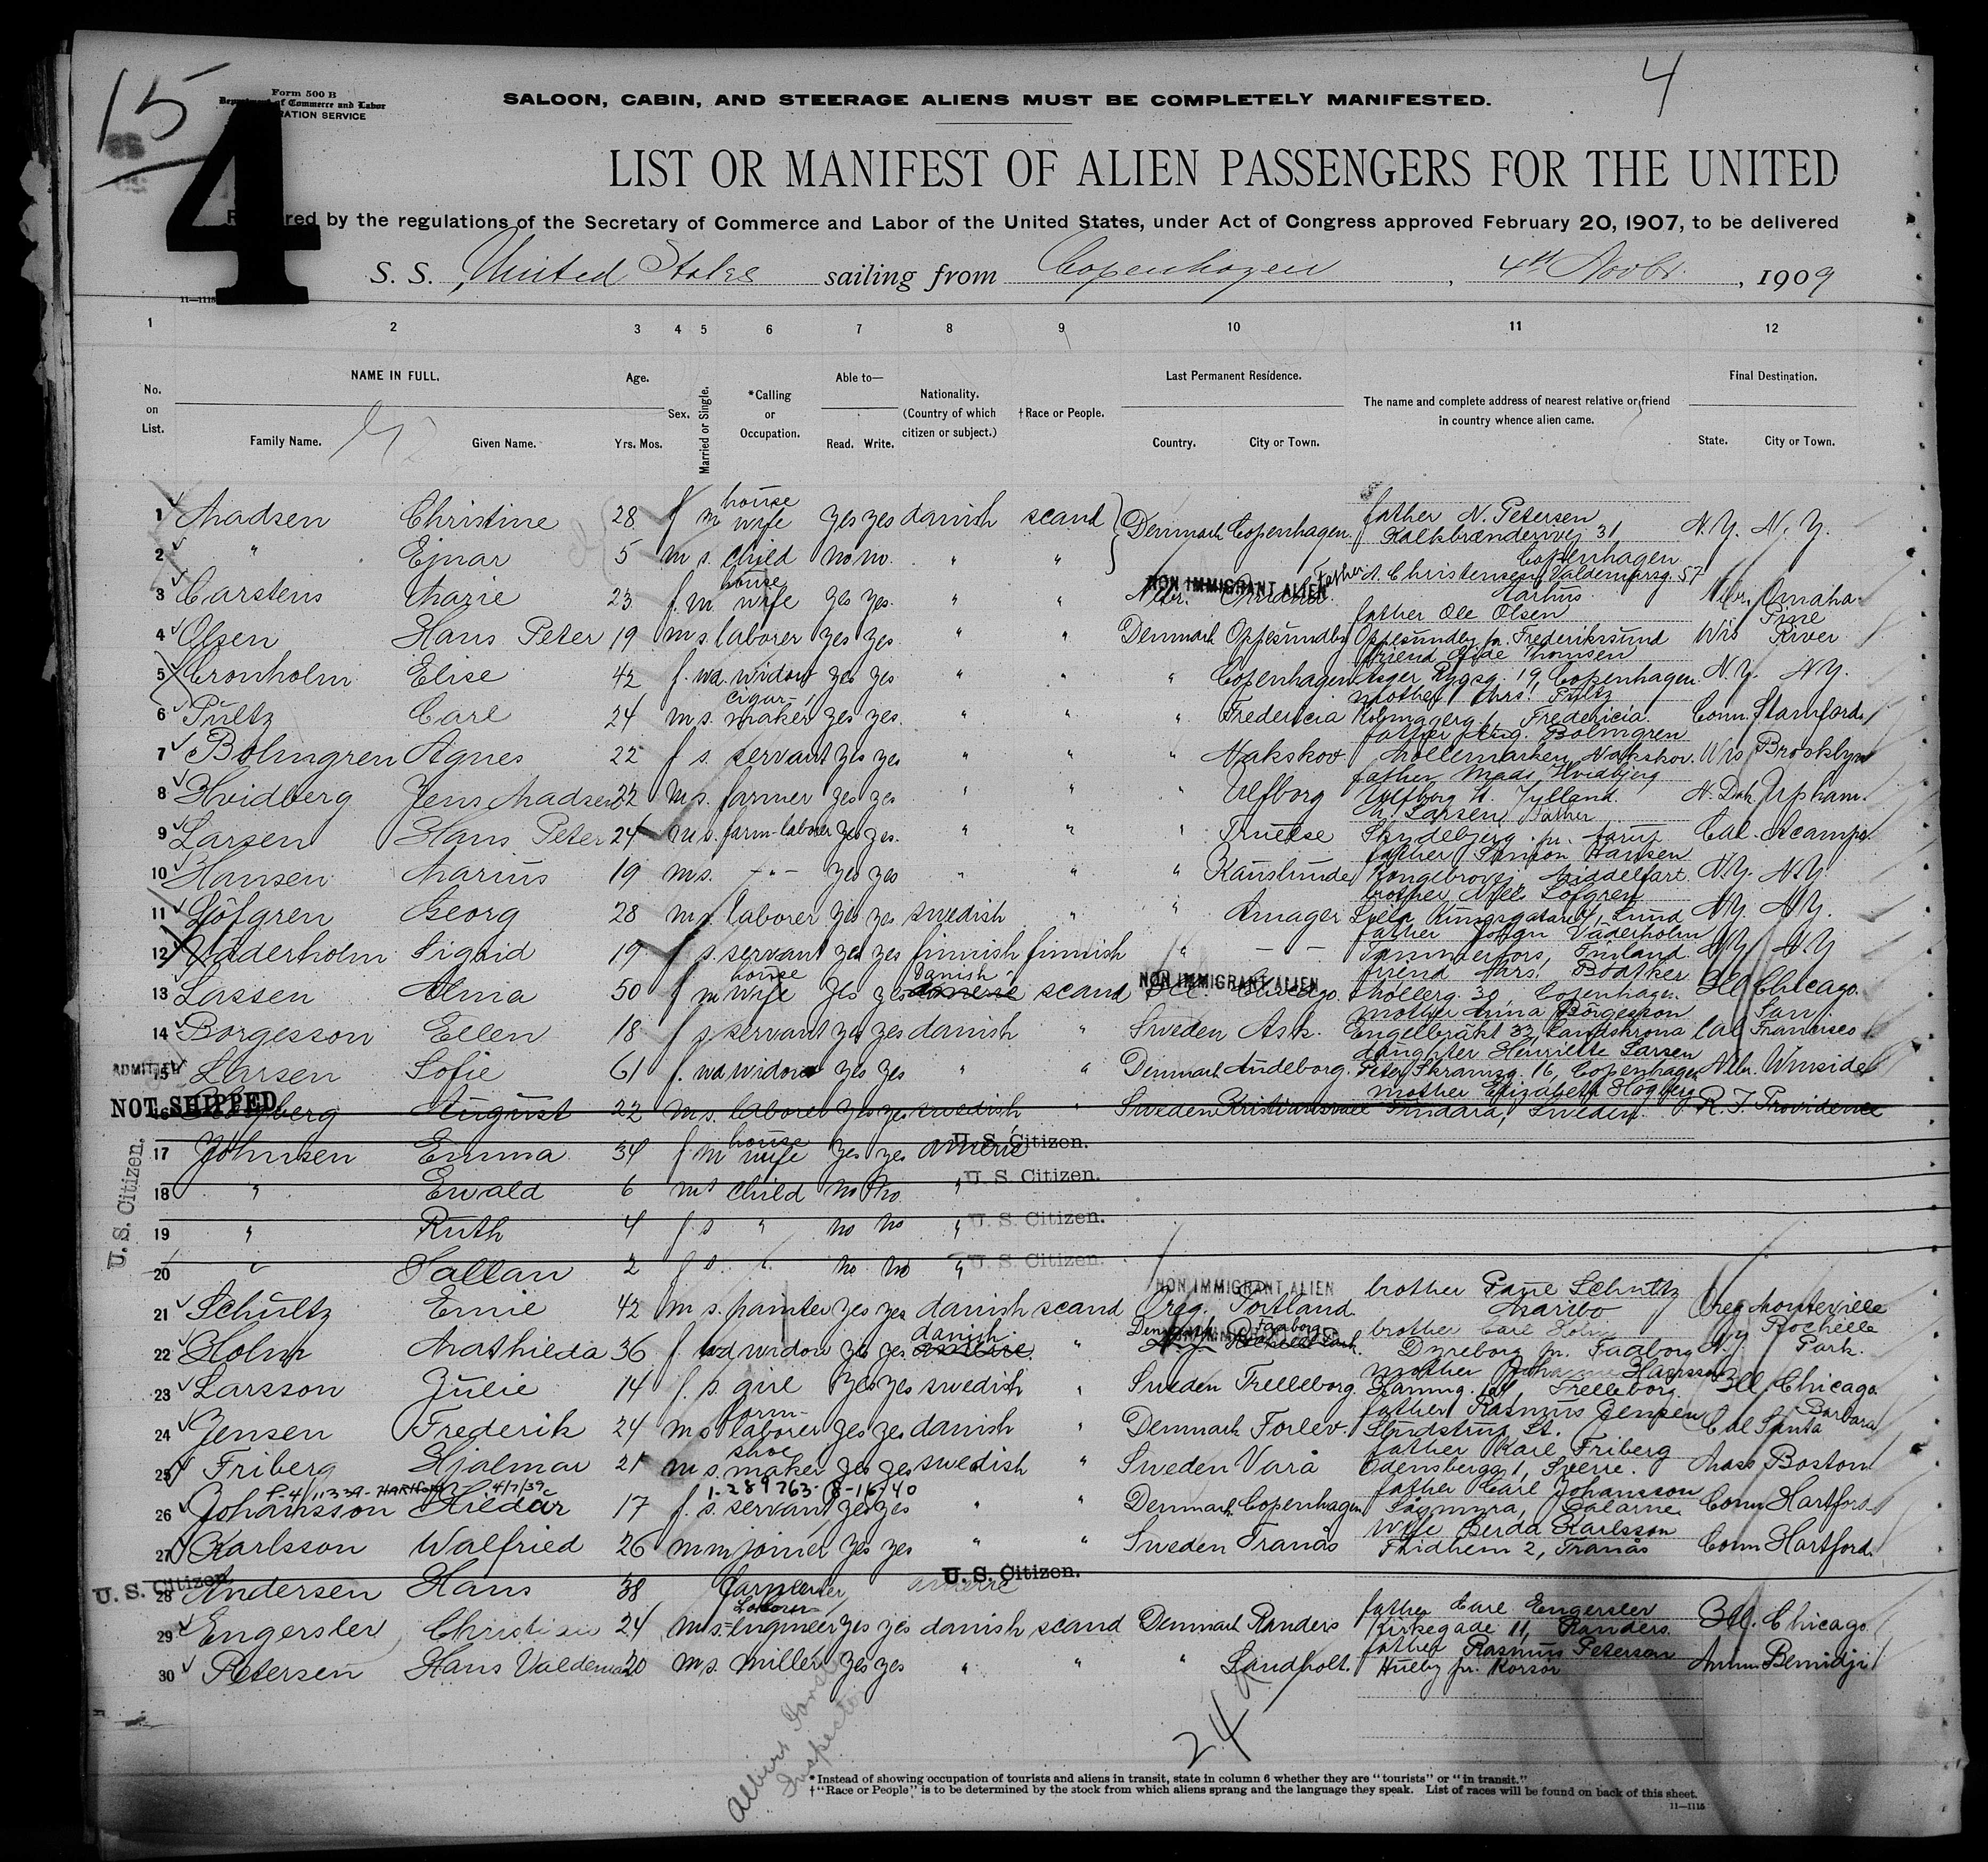 15
4
Form 500 B
Department of Commerce and Labor
IMMIGRATION SERVICE
4
SALOON, CABIN, AND STEERAGE ALIENS MUST BE COMPLETELY MANIFESTED.
LIST OR MANIFEST OF ALIEN PASSENGERS FOR THE UNITED
Required by the regulations of the Secretary of Commerce and Labor of the United States, under Act of Congress approved February 20, 1907, to be delivered
S. S. United States sailing from Copenhagen, 4th Novbr., 1909
11—1115
1 2 3 4 5 6 7 8 9 10 11 12
No. on List. NAME IN FULL. Family Name. Given Name. Age. Yrs. Mos. Sex. Married or Single. *Calling or Occupation. Able to— Read. Write. Nationality. (Country of which citizen or subject.) †Race or People. Last Permanent Residence. Country. City or Town. The name and complete address of nearest relative or friend in country whence alien came. Final Destination. State. City or Town.
1 Madsen Christine 28 f m house wife yes yes danish scand Denmark Copenhagen father N. Petersen Kalkbrænderivej 31, Copenhagen N.Y. N.Y.
2 " Ejnar 5 m s child no no " "
3 Carstens Marie 23 f. m house wife yes yes " " NON IMMIGRANT ALIEN Nebr. Omaha Father A. Christensen Valdemarsg. 57 Aarhus Nebr. Omaha
4 Olsen Hans Peter 19 m s laborer yes yes " " Denmark Oppesundby father Ole Olsen Oppesundby pr. Frederikssund Wis Pine River
5 Cronholm Elise 42 f. wd. widow yes yes " " " Copenhagen friend Thomsen 19, Copenhagen N.Y. N.Y.
6 Pultz Carl 24 m s. cigar- maker yes yes " " " Fredericia mother Mrs. Pultz 1, Fredericia. Conn. Stamford
7 Bolmgren Agnes 22 f s. servant yes yes " " " Nakskov father Aug. Bolmgren Møllemarken Nakskov. Wis Brooklyn
8 Hvidberg Jens Madsen 22 m s. farmer yes yes " " " Ulfborg father Mads Hvidbjerg Ulfborg St. Jylland. N. Dak. Upham.
9 Larsen Hans Peter 24 m s. farm-laborer yes yes " " " Truelse N. Larsen Father Skydebjerg pr. Aarup Cal. Acampo
10 Hansen Marius 19 m s. -"- yes yes " " " Kauslunde father Simon Hansen Kongebrovej Middelfart N.Y. N.Y.
11 Löfgren Georg 28 m s. laborer yes yes swedish " " Amager brother Nills Löfgren Kungsgatan 4, Lund N.Y. N.Y.
12 Väderholm Sigrid 19 f s. servant yes yes finnish finnish " — — father Johan Väderholm Tammerfors, Finland N.Y. N.Y.
13 Lassen Alma 50 f m house wife yes yes danish scand NON IMMIGRANT ALIEN Ill. Chicago. friend Mrs. Møllerg. 30, Copenhagen Ill Chicago.
14 Borgesson Ellen 18 f s servant yes yes danish " Sweden Ask. mother Anna Börgesson Engelbräkt 33, Landskrona Cal San Francisco
ADMITTED
15 Larsen Sofie 61 f. wd widow yes yes " " Denmark Andeborg. daughter Henriette Larsen Peter Skramsg. 16, Copenhagen Nebr. Winside
NOT SHIPPED
16 Högberg August 22 m s. laborer yes yes swedish " Sweden mother Elizabeth Högberg Sweden. R. I. Providence
17 Johnsen Emma 34 f m house wife yes yes americ U. S. Citizen.
18 " Ewald 6 m s child no no " U. S. Citizen.
19 " Ruth 4 f s " no no " U. S. Citizen.
20 " 2 f s. " no no " U. S. Citizen.
U. S. Citizen.
21 Schultz Emie 42 m s. painter yes yes danish scand NON IMMIGRANT ALIEN Oreg. Portland. brother Schultz Maribo Oreg Monteville
22 Holm Mathilda 36 f wd widow yes yes danish " Denmark Faaborg brother Carl Holm Dyreborg pr. Faaborg N.Y. Rochelle Park.
23 Larsson Julie 14 f. s. girl yes yes swedish " Sweden Trelleborg. mother Hansson Trelleborg. Ill. Chicago.
24 Jensen Frederik 24 m s farm- laborer yes yes danish " Denmark Forlev. father Rasmus Jensen St. Cal Santa Barbara
25 Friberg Hjalmar 21 m s. shoe maker yes yes swedish " Sweden Vara father Karl Friberg Odensbergg 1, Mass Boston
4/7/39 1-289763. 8-16/40
26 Johansson Hildur 17 f. s. servant yes yes " " Denmark Copenhagen father Carl Johansson Dalarne Conn Hartford
27 Karlsson Walfried 26 m m joiner yes yes " " Sweden Tranås wife Gerda Karlsson Fridhem 2, Tranås Conn Hartford.
U. S. Citizen
28 Andersen Hans 38 farmer americ U. S. Citizen.
29 Engersler Christian 24 m s. Laborer engineer yes yes danish scand Denmark Randers father Carl Engersler Kirkegade 11, Randers. Ill. Chicago
30 Petersen Hans Valdemar 20 m s. miller yes yes " " " Landholt. father Rasmus Petersen Hulby pr. Korsör Minn. Bemidji
24
Inspector
*Instead of showing occupation of tourists and aliens in transit, state in column 6 whether they are "tourists" or "in transit."
†"Race or People" is to be determined by the stock from which aliens sprang and the language they speak. List of races will be found on back of this sheet.
11—1115